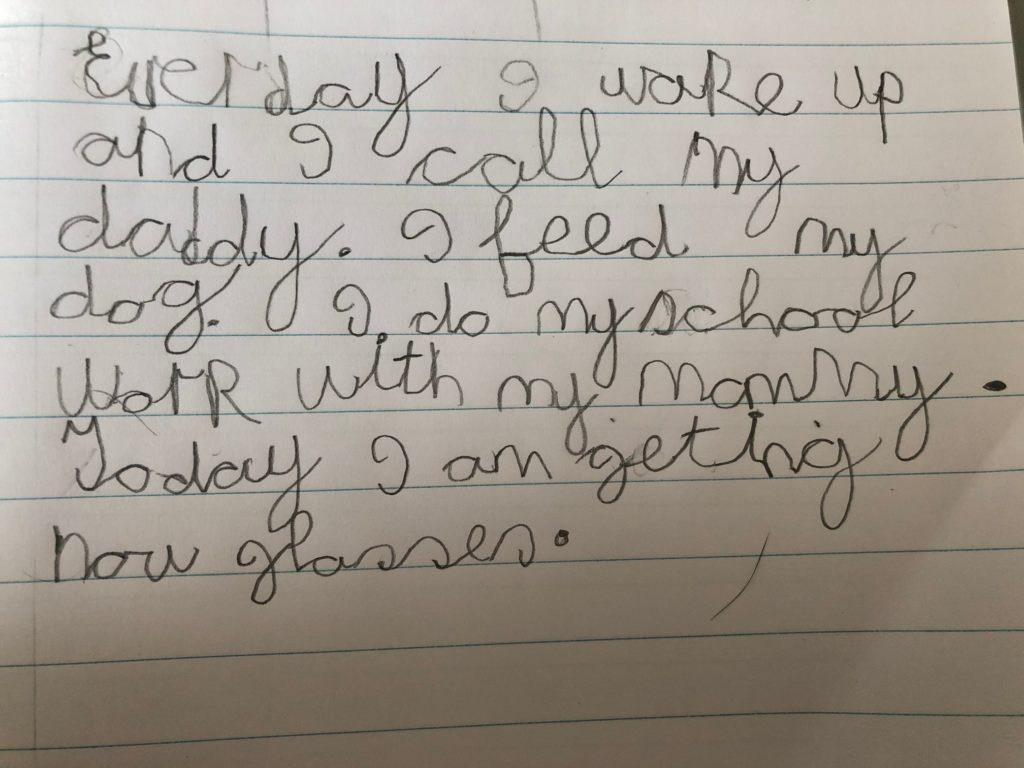 Everday I wake up
and I call my
daddy. I feed my
dog. I do my school
work with my mommy.
Today I am geting
now glasses.